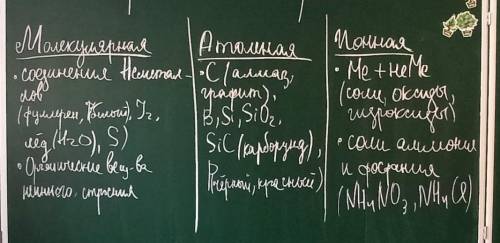 Молекулярная
• соединения Неметал-
лов
(фуллерен, P(белый), I2,
лёд (H2O), S)
• Органические вещ-ва
немонного строения
Атомная
• C (алмаз,
графит),
B, Si, SiO2,
SiC (карборунд),
P(чёрный, красный)
Ионная
• Me + неMe
(соли, оксиды,
гидроксиды)
• соли аммония
и фосфония
(NH4NO3, NH4Cl)